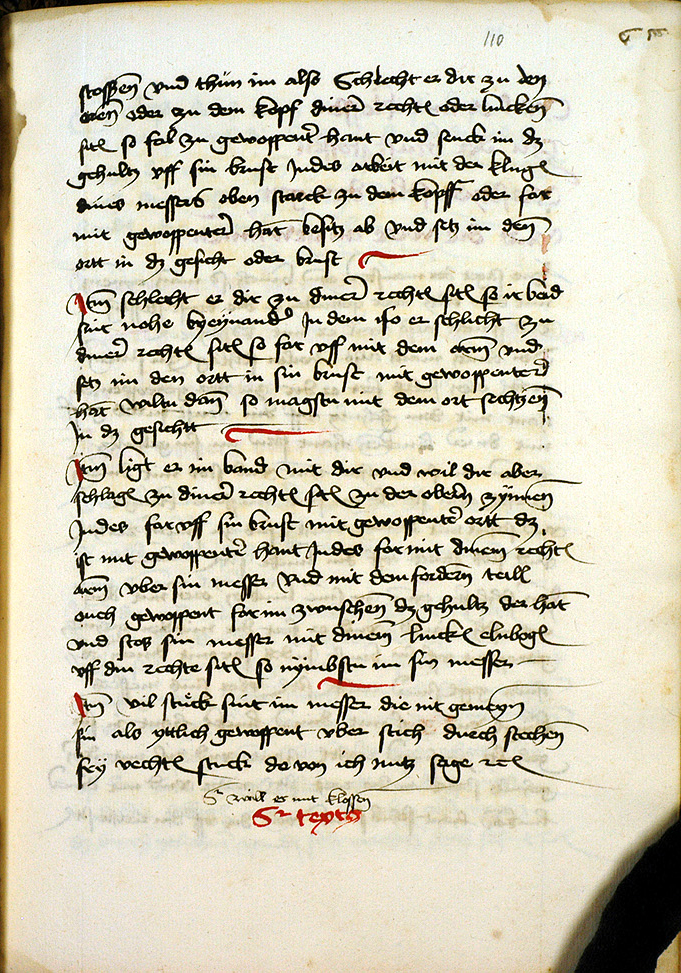 110
stossen vnd thün im also Schlecht er dir zu den
oren oder zu dem kopf diner rechtē oder lincken
sitē so fal zu gewoppenter hant vnd senck im dz
gehultz vff sin brust Indes arbeit mit der klingē
dines messers oben starck zu dem kopff oder far
mit gewoppenter hāt besitz ab vnd setz im den
ortt in dz gesicht oder brust
Itm̄ schlecht er dir zu diner rechtē sitē so ir beid
sint nohe byeynand' In dem so er schlicht zu
diner rechtē sitē so far vff mit dem arm vnd
setz im den ortt in sin brust mit gewoppenter
hāt wiltu dan so magstu mit dem ort sechtzen
In dz gesichtt
Itm̄ ligt er im band mit dir vnd wil dir aber
schlagē zu diner rechtē sitē zu der obern zynnen
Indes far vff sin brust mit gewoppenter ortt dz
ist mit gewoppenter hant Indes far mit dinem rechtē
arm vber sin messer vnd mit dem fordern teill
ouch gewoppent far im zwuschen dz gehultz der hāt
vnd stos sin messer mit dinem linckē elnbogē
vff din rechte sitē so nymbstu im sin messer
Itm̄ vil stuck sint im messer die nit gemeyn
sin als yttlich gewoppent vber stich durch stechen
sey vechtē stuck do von ich nutz sage
S^r will es mit klossen
S^r texth